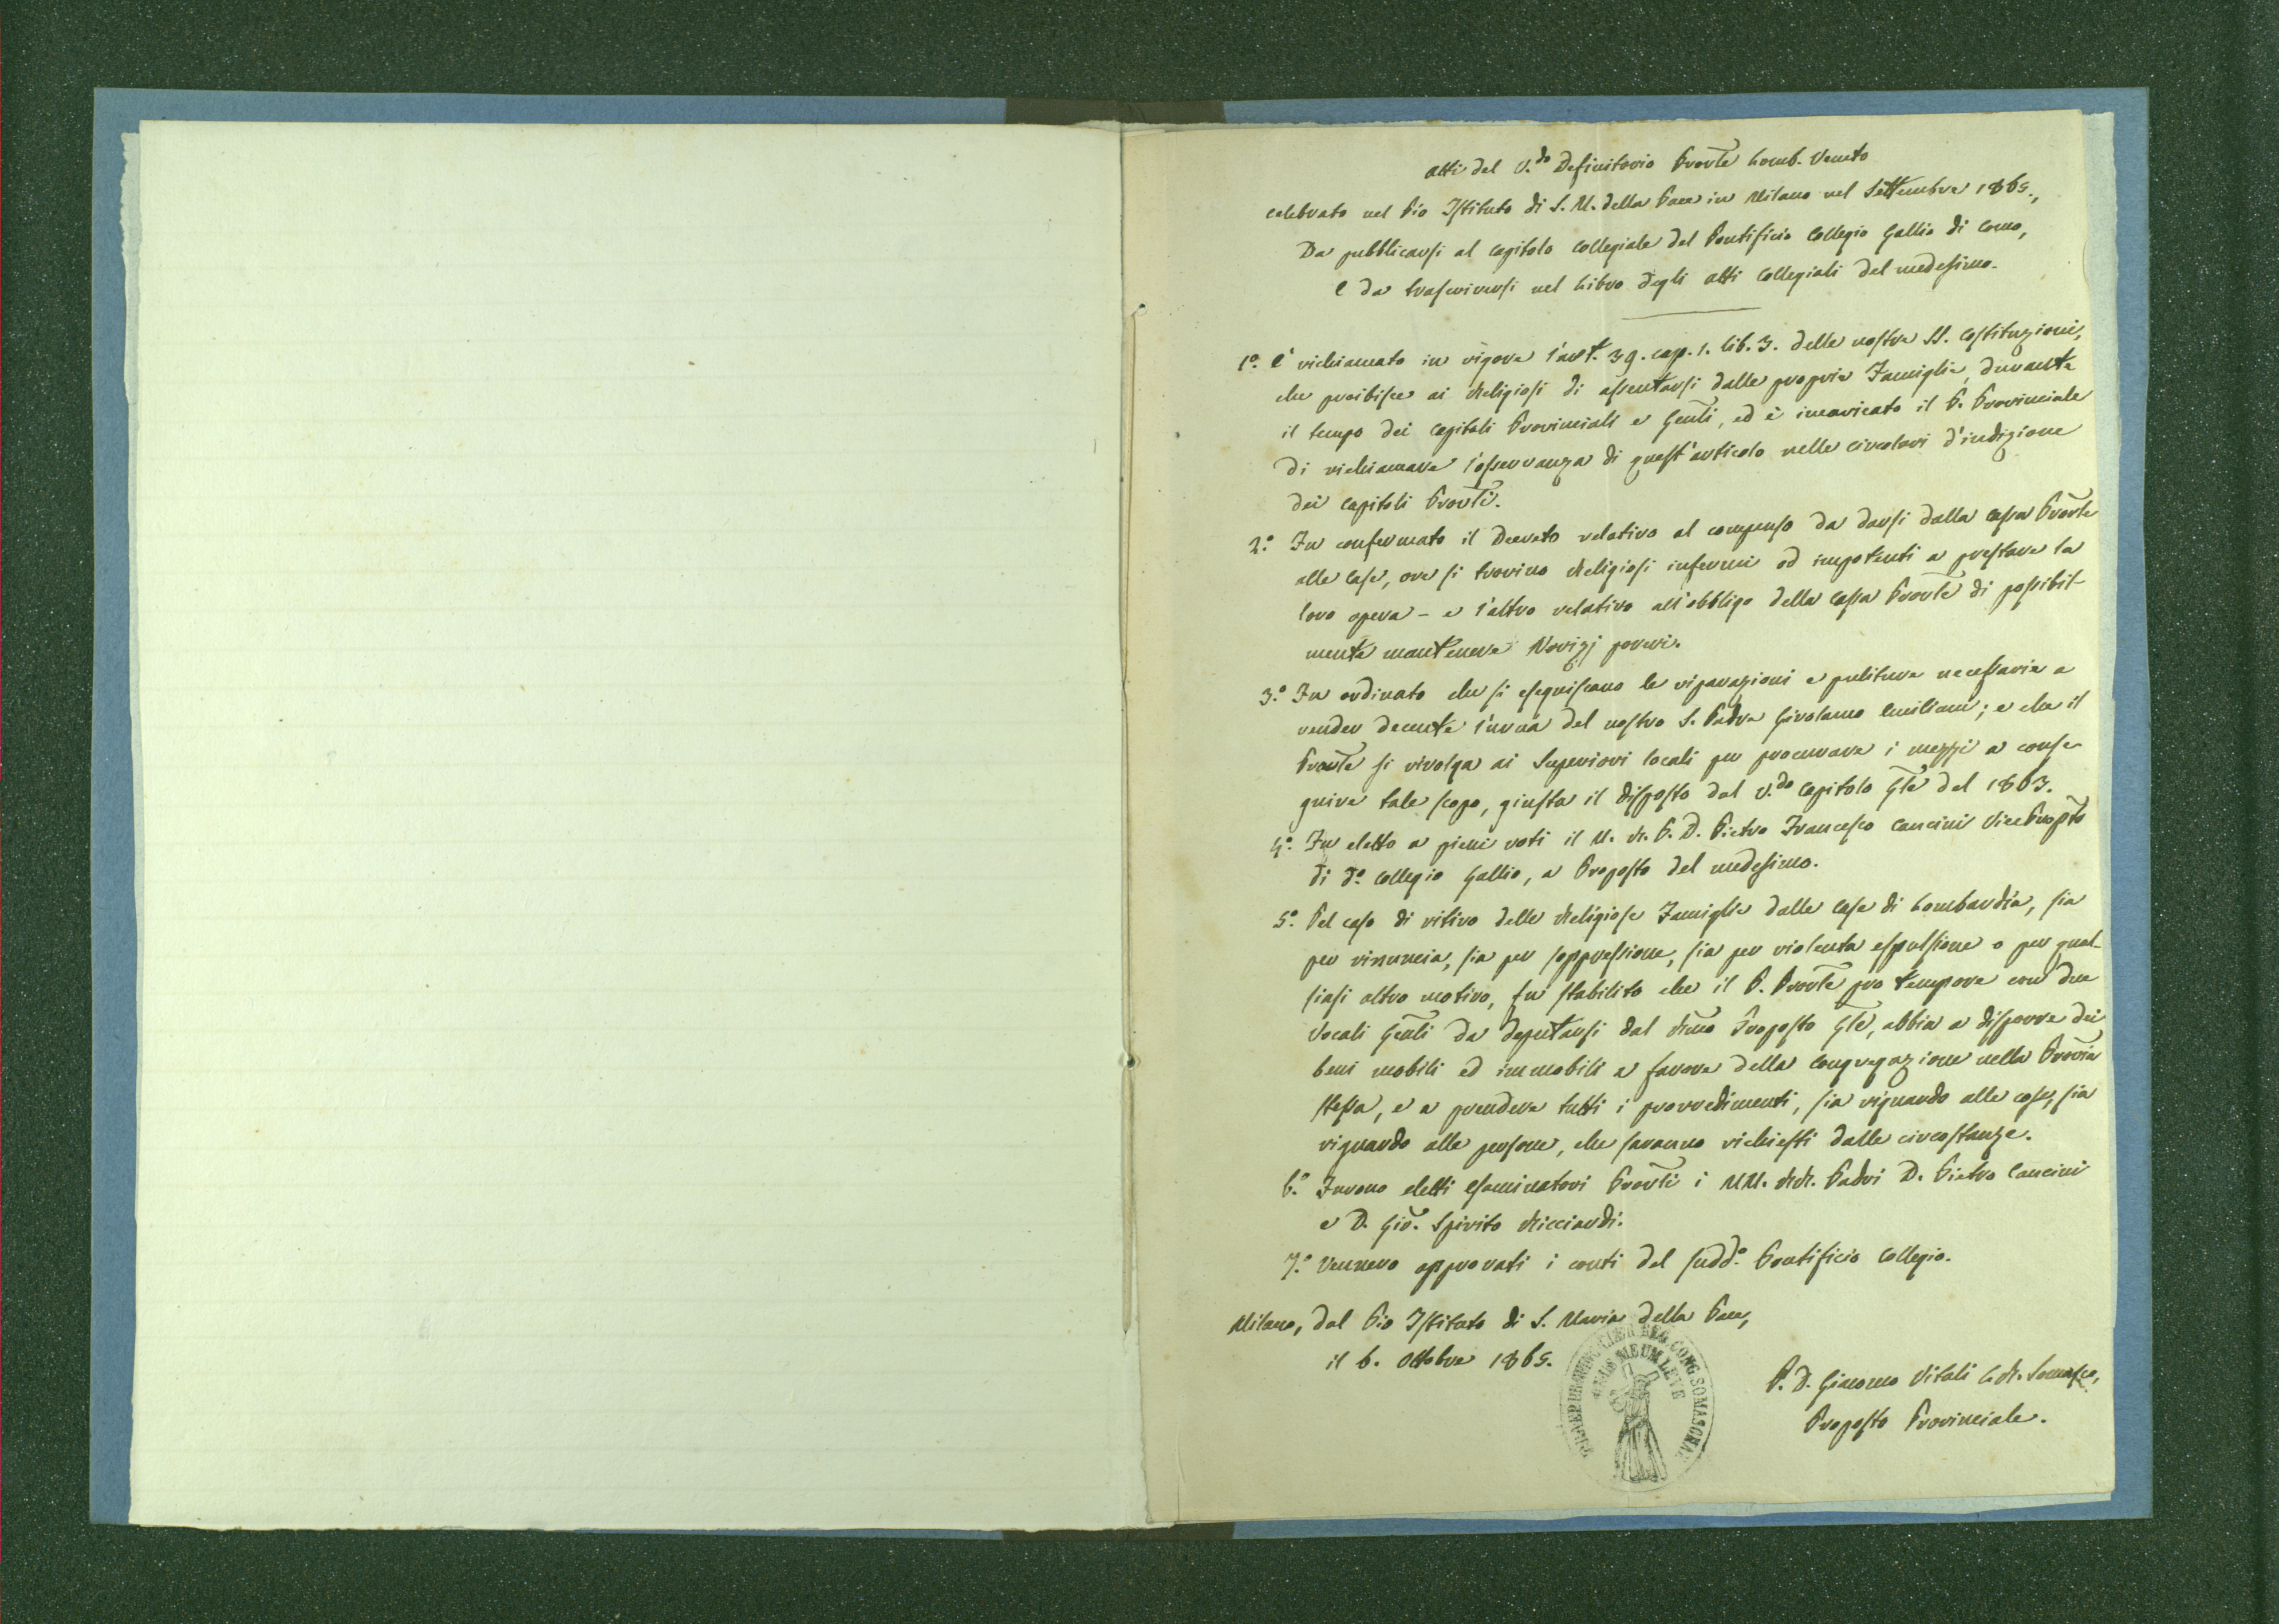 Atti del V.do Definitorio Provle Lomb. Veneto
celebrato nel Pio Istituto di S. M. della Pace in Milano nel Settembre 1865.,
Da pubblicarsi al Capitolo Collegiale del Pontificio Collegio Gallio di Como,
e da trascriversi nel Libro degli Atti Collegiali del medesimo.
1.o È richiamato in vigore l'art. 39. cap. 1. lib. 3. delle nostre SS. Costituzioni,
che proibisce ai Religiosi di assentarsi dalle proprie Famiglie, durante
il tempo dei Capitoli Provinciali e Genli, ed è incaricato il P. Provinciale
di richiamare l'osservanza di quest'articolo nelle circolari d'indizione
dei Capitoli Provli.
2.o Fu confermato il Decreto relativo al compenso da darsi dalla Cassa Provle
alle Case, ove si trovino Religiosi infermi od impotenti a prestare la
loro opera - e l'altro relativo all'obbligo della Cassa Provle di possibil-
mente mantenere Novizj poveri.
3.o Fu ordinato che si eseguiscano le riparazioni e puliture necessarie a
render decente l'urna del nostro S. Padre Girolamo Emiliani; e che il
Provle si rivolga ai Superiori locali per procurare i mezzi a conse-
guire tale scopo, giusta il disposto dal V.do Capitolo Gle del 1863.
4.o Fu eletto a pieni voti il M. R. P. D. Pietro Francesco Cancini VicePropto
di d.o Collegio Gallio, a Proposto del medesimo.
5.o Pel caso di ritiro delle Religiose Famiglie dalle Case di Lombardia, sia
per rinuncia, sia per soppressione, sia per violenta espulsione o per qual-
siasi altro motivo, fu stabilito che il P. Provle pro tempore con due
Vocali Genli da deputarsi dal Rmo Proposto Gle, abbia a disporre dei
beni mobili ed immobili a favore della Congregazione nella Provia
stessa, e a prendere tutti i provvedimenti, sia riguardo alle cose, sia
riguardo alle persone, che saranno richiesti dalle circostanze.
6.o Furono eletti Esaminatori Provli i MM. RR. Padri D. Pietro Cancini
e D. Gio. Spirito Ricciardi.
7.o Vennero approvati i conti del sudd.o Pontificio Collegio.
Milano, dal Pio Istituto di S. Maria della Pace,
il 6. Ottobre 1865.
P. D. Giacomo Vitali C. R. Somasco,
Proposto Provinciale.
CONG. SOMASCHAE
ONUS MEUM LEVE